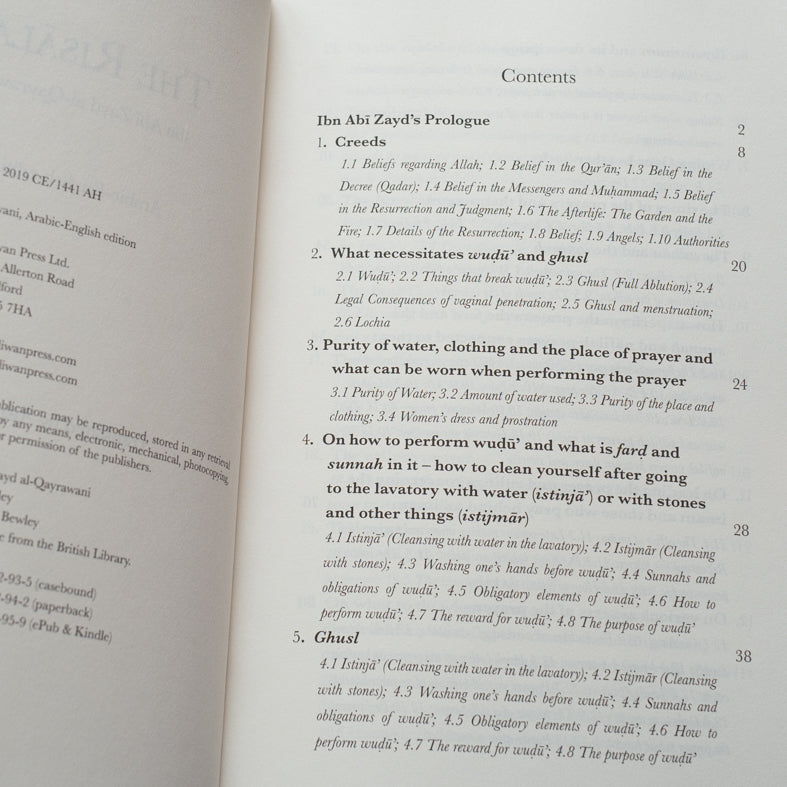 2019 CE/1441 AH
Arabic-English edition
Press Ltd.
Allerton Road
7HA
publication may be reproduced, stored in any retrieval
by any means, electronic, mechanical, photocopying,
permission of the publishers.
al-Qayrawani
Bewley
from the British Library.
-93-5 (casebound)
-94-2 (paperback)
-95-9 (ePub & Kindle)
Contents
Ibn Abī Zayd’s Prologue 2
1. Creeds 8
1.1 Beliefs regarding Allah; 1.2 Belief in the Qur’ān; 1.3 Belief in the
Decree (Qadar); 1.4 Belief in the Messengers and Muhammad; 1.5 Belief
in the Resurrection and Judgment; 1.6 The Afterlife: The Garden and the
Fire; 1.7 Details of the Resurrection; 1.8 Belief; 1.9 Angels; 1.10 Authorities
2. What necessitates wuḍū’ and ghusl 20
2.1 Wuḍū’; 2.2 Things that break wuḍū’; 2.3 Ghusl (Full Ablution); 2.4
Legal Consequences of vaginal penetration; 2.5 Ghusl and menstruation;
2.6 Lochia
3. Purity of water, clothing and the place of prayer and
what can be worn when performing the prayer 24
3.1 Purity of Water; 3.2 Amount of water used; 3.3 Purity of the place and
clothing; 3.4 Women’s dress and prostration
4. On how to perform wuḍū’ and what is farḍ and
sunnah in it – how to clean yourself after going
to the lavatory with water (istinjā’) or with stones
and other things (istijmār) 28
4.1 Istinjā’ (Cleansing with water in the lavatory); 4.2 Istijmār (Cleansing
with stones); 4.3 Washing one’s hands before wuḍū’; 4.4 Sunnahs and
obligations of wuḍū’; 4.5 Obligatory elements of wuḍū’; 4.6 How to
perform wuḍū’; 4.7 The reward for wuḍū’; 4.8 The purpose of wuḍū’
5. Ghusl 38
4.1 Istinjā’ (Cleansing with water in the lavatory); 4.2 Istijmār (Cleansing
with stones); 4.3 Washing one’s hands before wuḍū’; 4.4 Sunnahs and
obligations of wuḍū’; 4.5 Obligatory elements of wuḍū’; 4.6 How to
perform wuḍū’; 4.7 The reward for wuḍū’; 4.8 The purpose of wuḍū’